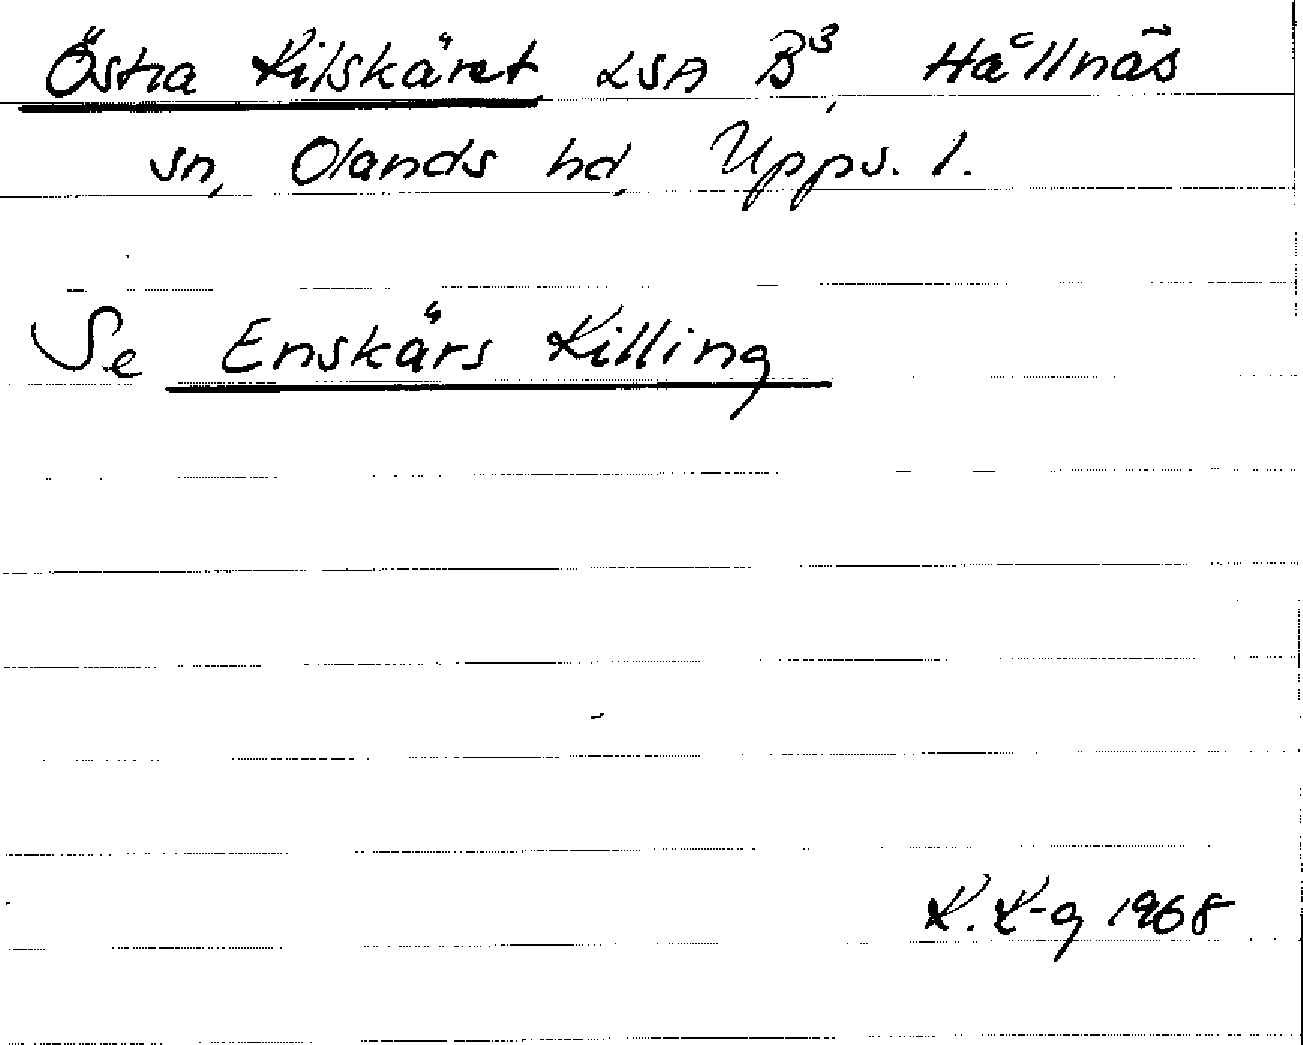 Östra Kilskäret LSA B³, Hållnäs
sn, Olands hd, Upps. l.
Se Enskärs Killing
K. K-g 1968